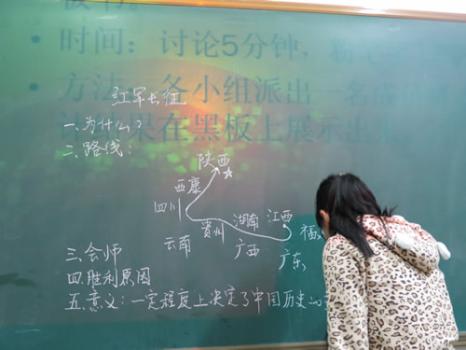 板书
• 时间：讨论5分钟，
• 方法：各小组派出一名
果在黑板上展示出
红军长征
一、为什么？
二、路线：
陕西
西康
四川
贵州
湖南
江西
福
云南
广西
广东
三、会师
四、胜利原因
五、意义：一定程度上决定了中国历史的